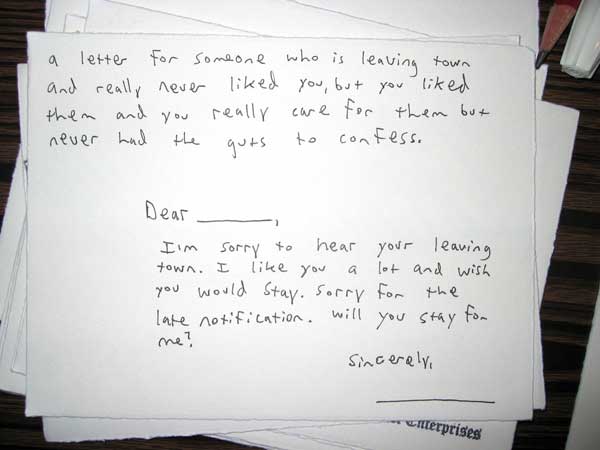 a letter for someone who is leaving town
and really never liked you, but you liked
them and you really care for them but
never had the guts to confess.
Dear ________,
I'm sorry to hear your leaving
town. I like you a lot and wish
you would stay. Sorry for the
late notification. will you stay for
me?
Sincerely,
Enterprises